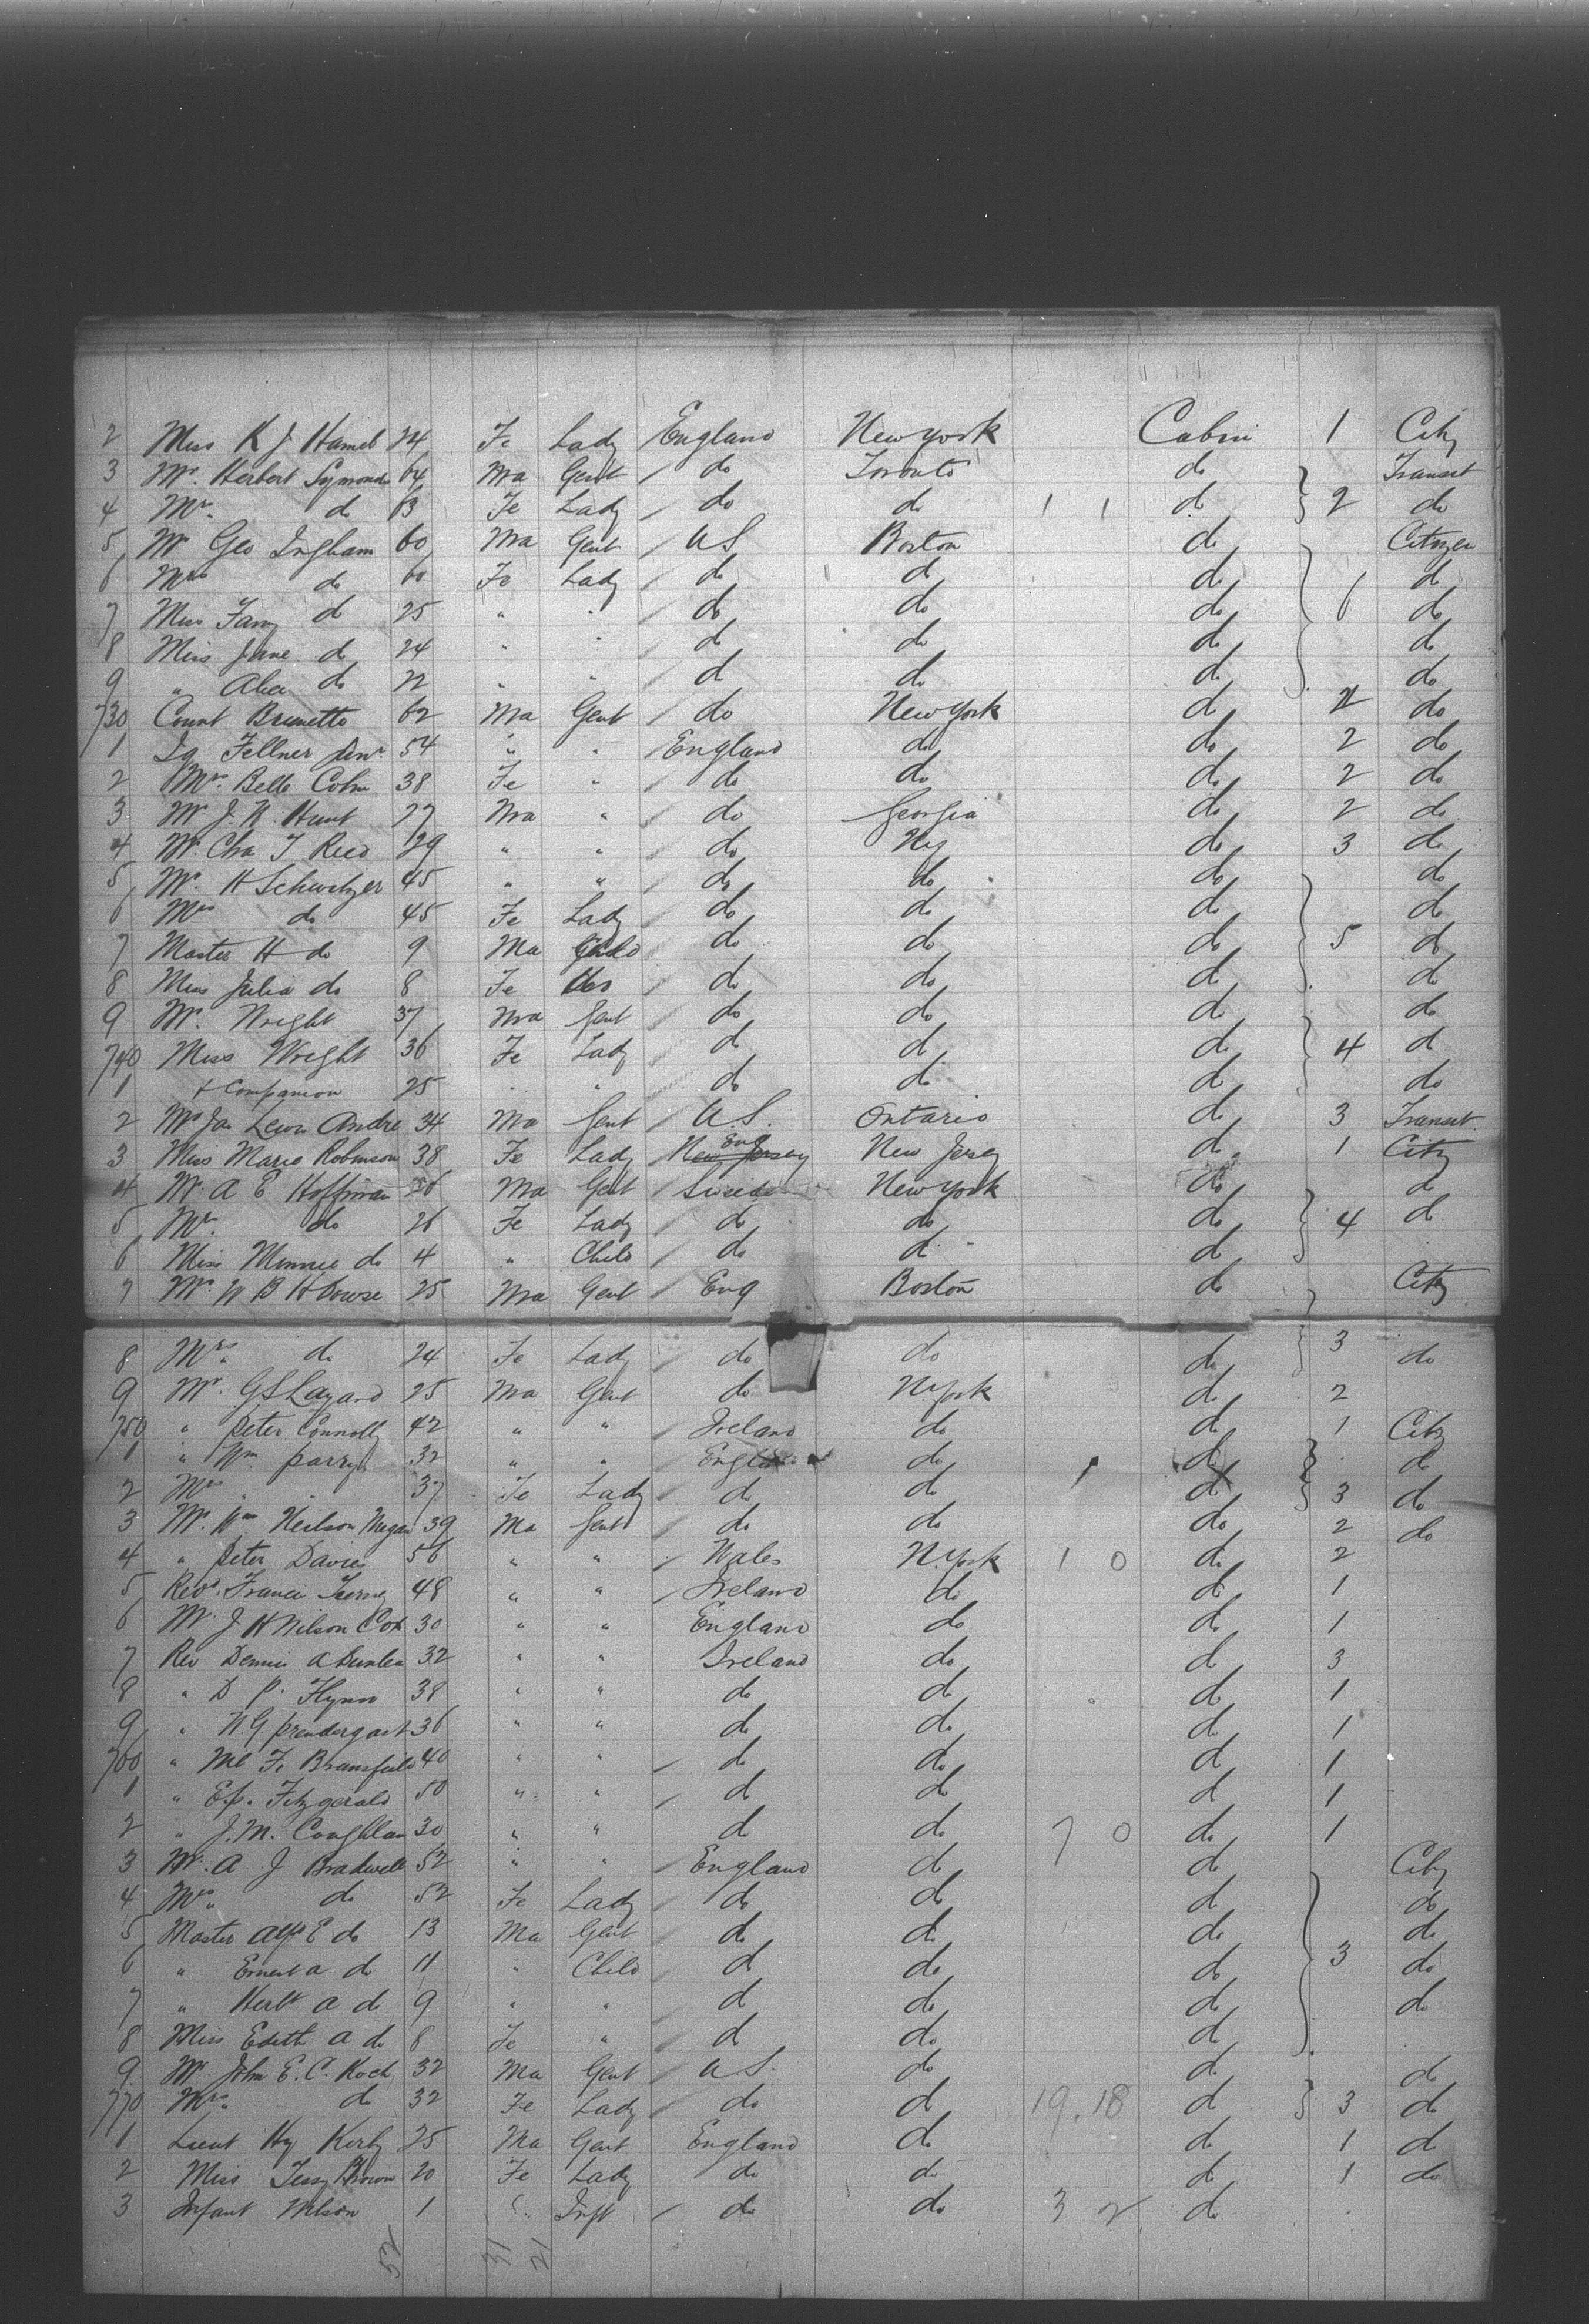 2 Miss K J Hamel 24 Fe Lady England New York Cabin 1 City
3 Mr. Herbert Symonds 64 Ma Gent / do Toronto do Transit
4 Mrs. do 63 Fe Lady / do do 1 1 do 2 do
5 Mr Geo Ingham 60 Ma Gent / U S Boston do Citizen
6 Mrs do 60 Fe Lady / do do do do
7 Miss Fany do 25 " " / do do do 6 do
8 Miss Jane do 24 " " / do do do do
9 " Alice do 22 " " / do do do do
730 Count Brunetto 62 Ma Gent / do New York do 2 do
1 Fellner 54 " " / England do do 2 do
2 Mrs. Belle Cohn 38 Fe " / do do do 2 do
3 Mr J. R. Hunt 27 Ma " / do Georgia do 2 do
4 Mr. Cha T Reed 29 " " / do Ny do 3 do
5 Mr. H Schwitzer 45 " " / do do do do
6 Mrs do 45 Fe Lady / do do do do
7 Master H do 9 Ma Child / do do do 5 do
8 Miss Julia do 8 Fe do / do do do do
9 Mr. Wright 37 Ma Gent / do do do do
740 Miss Wright 36 Fe Lady / do do do 4 do
1 + Companion 25 " " / do do do do
2 Mr Jas Lewis Andre 34 Ma Gent / U.S. Ontario do 3 Transit
3 Miss Marie Robinson 38 Fe Lady / New Jersey Eng New Jersey do 1 City
4 Mr. A E Hoffman Ma Gent / Swede New York do do
5 Mrs. do 26 Fe Lady / do do do 4 do
6 Miss Minnie do 4 " Child / do do do
7 Mr. W B Howse 25 Ma Gent / Eng Boston do City
8 Mrs. do 24 Fe Lady / do do do 3 do
9 Mr. G S Lazard 25 Ma Gent do N. York do 2
750 " Peter Connolly 42 " " / Ireland do do 1 City
1 " Wm Parry 32 " " / England do 1 do do
2 Mrs " 37 Fe Lady / do do do 3 do
3 Mr. Wm Neilson 39 Ma Gent / do do do 2 do
4 " Peter Davies 56 " " / Wales N. York 1 0 do 2
5 Revd. Francis 48 " " / Ireland do do 1
6 Mr. J H Nilson Cox 30 " " / England do do 1
7 Rev Dennis A 32 " " Ireland do do 3
8 " D P. Flynn 38 " " / do do do 1
9 " W G. Prendergast 36 " " / do do do 1
760 " Ml F. Bransfield 40 " " / do do do 1
1 " E.P. Fitzgerald 50 " " / do do do 1
2 " J. M. Coughlan 30 " " / do do 7 0 do 1
3 Mr. A. J Bradwell 52 " " / England do do City
4 Mrs. do 52 Fe Lady / do do do do
5 Master Alf E do 13 Ma Gent / do do do do
6 " Ernest A do 11 " Child / do do do 3 do
7 " Herbt A do 9 " " / do do do do
8 Miss Edith A do 8 Fe " / do do do
9 Mr John E. C. Koch 32 Ma Gent / U S. do do do
770 Mrs. do 32 Fe Lady / do do 19. 18 do 3 do
1 Lieut Hy Kirby 25 Ma Gent / England do do 1 do
2 Miss Tessy Brown 20 Fe Lady / do do do 1 do
3 Infant Wilson 1 " Inft / do do 3 2 do
52 31 21